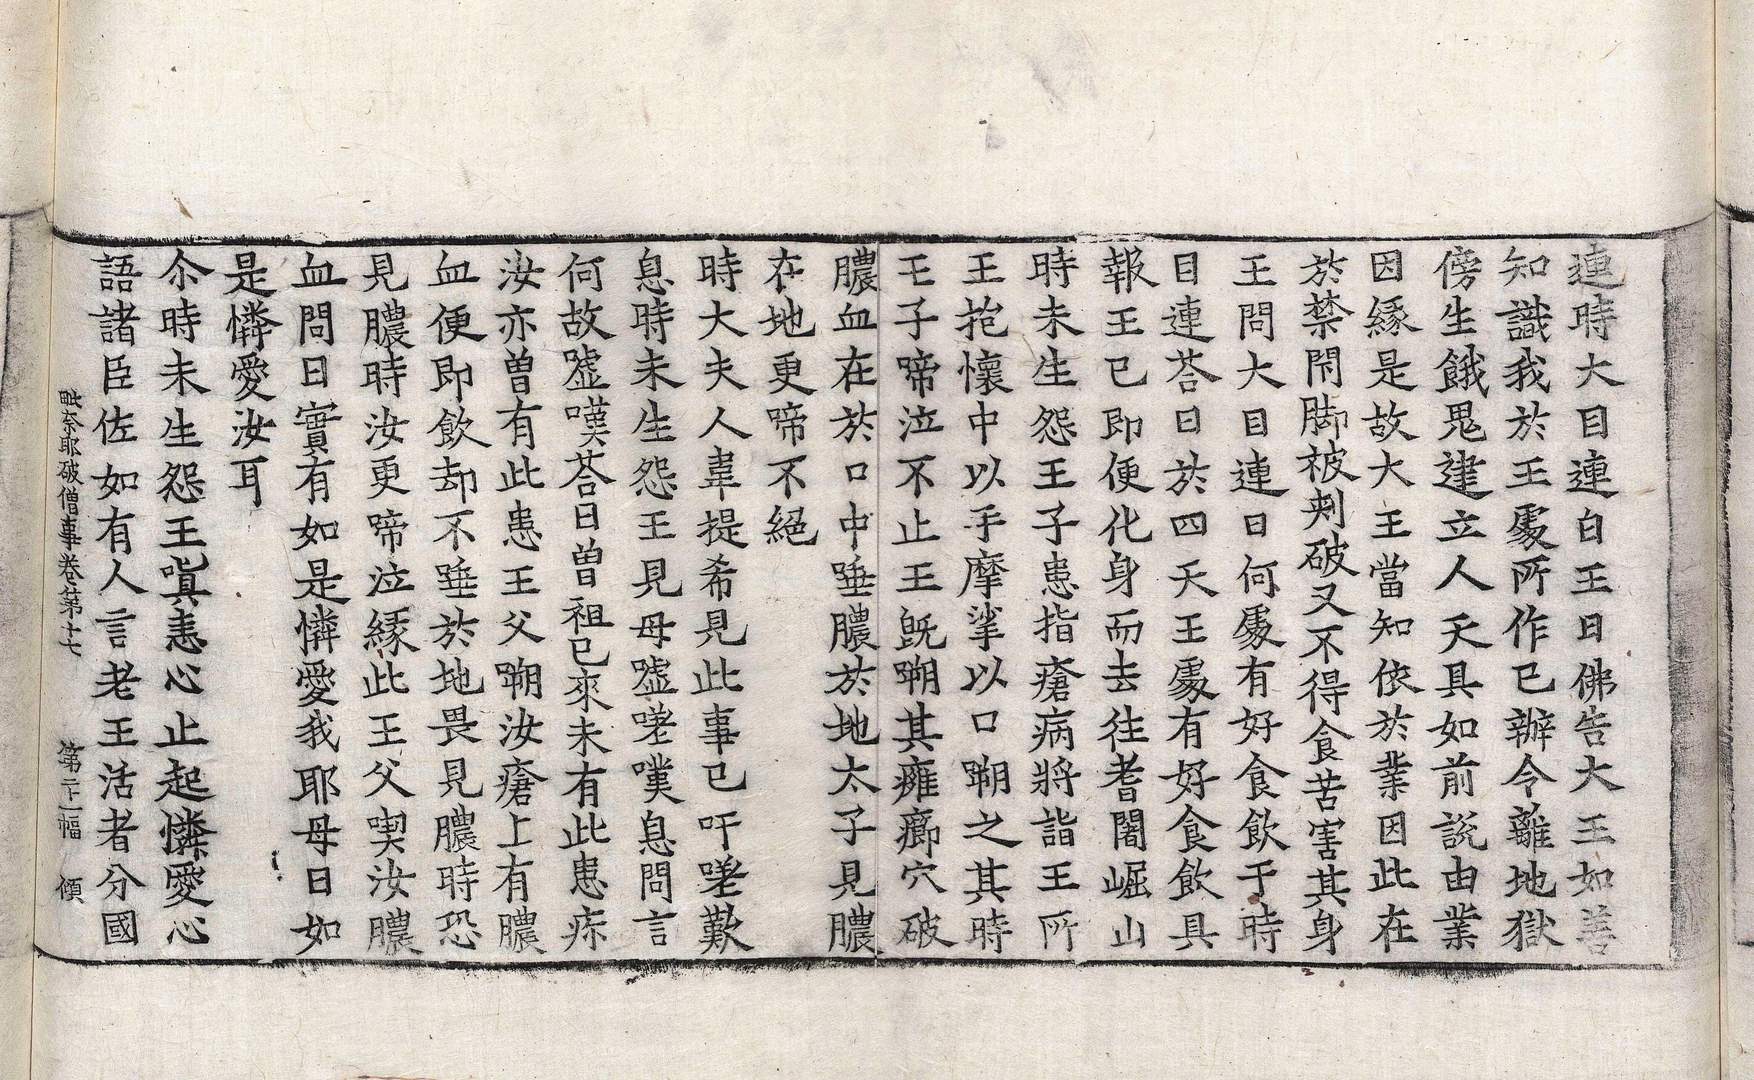 連時大目連白王曰佛告大王如善
知識我於王處所作已辦令離地獄
傍生餓鬼建立人天具如前說由業
因緣是故大王當知依於業因此在
於禁閇脚被刾破又不得食苦害其身
王問大目連曰何處有好食飲于時
目連荅曰於四天王處有好食飲具
報王已即便化身而去往耆闍崛山
時未生怨王子患指瘡病將詣王所
王抱懷中以手摩挲以口嗍之其時
王子啼泣不止王旣嗍其癰癤穴破
膿血在於口中唾膿於地太子見膿
在地更啼不絕
時大夫人韋提希見此事已吁嗟歎
息時未生怨王見母嘘嗟嘆息問言
何故嘘嘆荅曰曽祖已來未有此患疾
汝亦曽有此患王父嗍汝瘡上有膿
血便即飲却不唾於地畏見膿時恐
見膿時汝更啼泣緣此王父喫汝膿
血問曰實有如是憐愛我耶母曰如
是憐愛汝耳
尒時未生怨王嗔恚心止起憐愛心
語諸臣佐如有人言老王活者分國
毗奈耶破僧事卷第十七 第二十一幅 傾